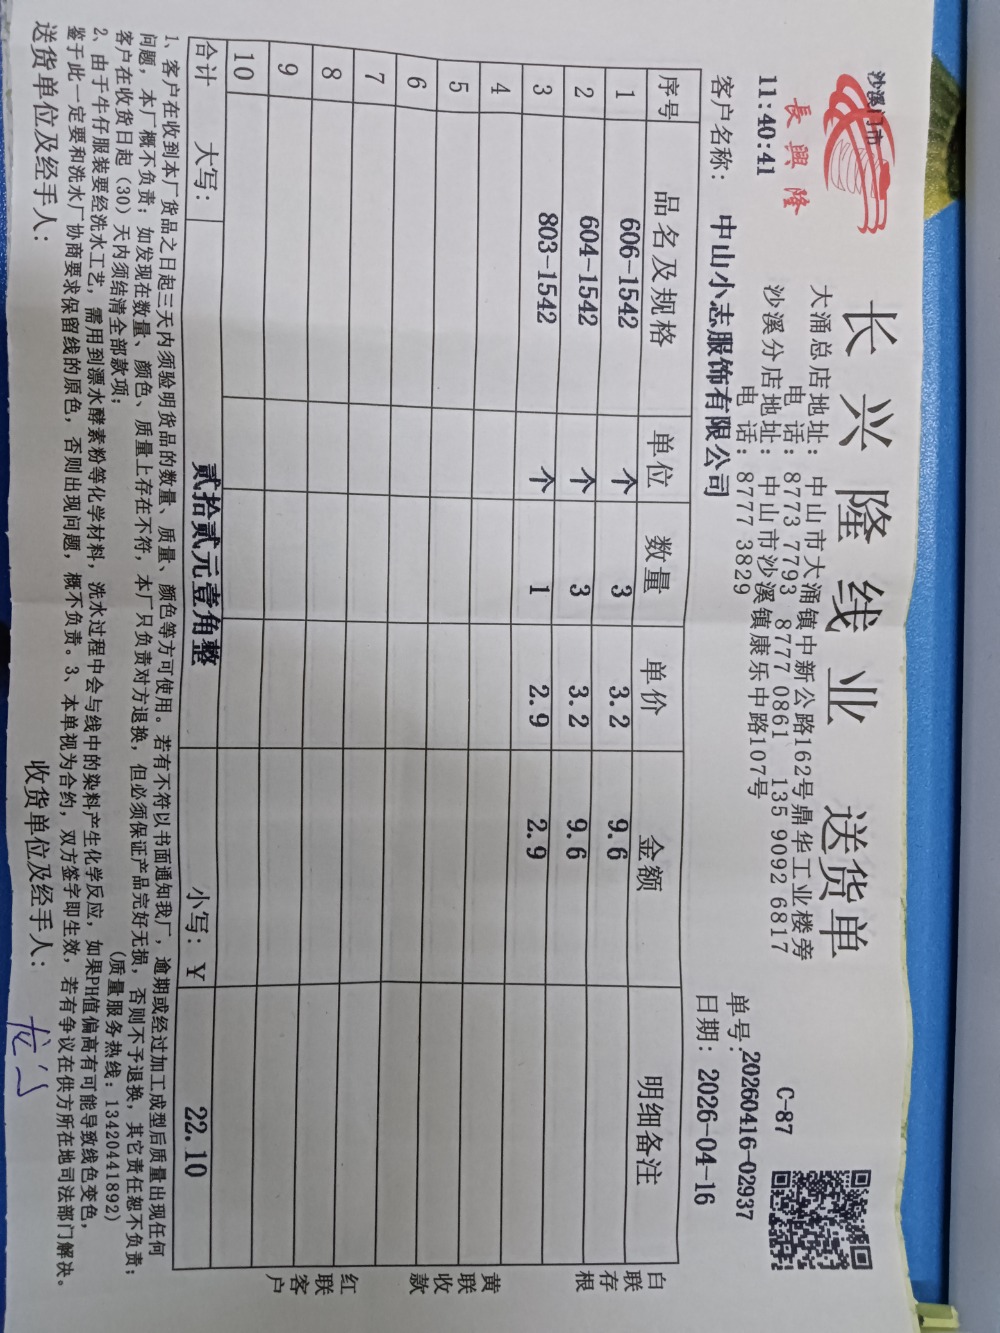 沙溪门市
長興隆
11:40:41
长兴隆线业 送货单
大涌总店地址：中山市大涌镇中新公路162号鼎华工业楼旁
电 话：8773 7793 8777 0861 135 9092 6817
沙溪分店地址：中山市沙溪镇康乐中路107号
电 话：8777 3829
C-87
单号：20260416-02937
客户名称：中山小志服饰有限公司
日期：2026-04-16
序号 品名及规格 单位 数量 单价 金额 明细备注
1 606-1542 个 3 3.2 9.6
2 604-1542 个 3 3.2 9.6
3 803-1542 个 1 2.9 2.9
4
5
6
7
8
9
10
合计 大写：贰拾贰元壹角整 小写：¥ 22.10
白联存根
黄联收款
红联客户
1、客户在收到本厂货品之日起三天内须验明货品的数量、质量、颜色等方可使用。若有不符以书面通知我厂，逾期或经过加工成型后质量出现任何
问题，本厂概不负责；如发现在数量、颜色、质量上存在不符，本厂只负责对方退换，但必须保证产品完好无损，否则不予退换，其它责任恕不负责；
客户在收货日起（30）天内须结清全部款项； （质量服务热线：13420441892）
2、由于牛仔服装要经洗水工艺，需用到漂水酵素粉等化学材料，洗水过程中会与线中的染料产生化学反应，如果PH值偏高有可能导致线色变色，
鉴于此一定要和洗水厂协商要求保留线的原色，否则出现问题，概不负责。3、本单视为合约，双方签字即生效，若有争议在供方所在地司法部门解决。
送货单位及经手人： 收货单位及经手人：